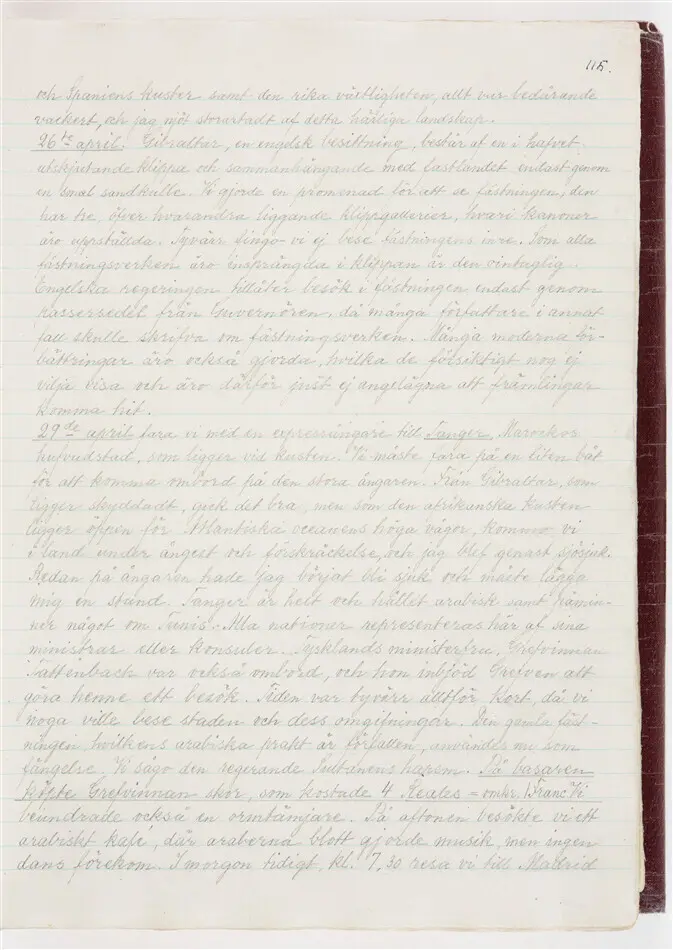 115.
och Spaniens kuster samt den rika växtligheten, allt var bedårande
vackert, och jag njöt storartadt af detta härliga landskap.
26te april. Gibraltar, en engelsk besittning, består af en i hafvet
utskjutande klippa och sammanhängande med fastlandet endast genom
en smal sandkulle. Vi gjorde en promenad för att se fästningen, den
har tre, öfver hvarandra liggande klippgallerier, hvari kanoner
äro uppställda. Tyvärr fingo vi ej bese fästningens inre. Som alla
fästningsverken äro insprängda i klippan är den ointaglig.
Engelska regeringen tillåter besök i fästningen endast genom
passersedel från Guvernören, då många författare i annat
fall skulle skrifva om fästningsverken. Många moderna för-
bättringar äro också gjorda, hvilka de försiktigt nog ej
vilja visa och äro därför just ej angelägna att främlingar
komma hit.
29de april fara vi med en expressångare till Tanger, Marockos
hufvudstad, som ligger vid kusten. Vi måste fara på en liten båt
för att komma ombord på den stora ångaren. Från Gibraltar, som
ligger skyddadt, gick det bra, men som den afrikanska kusten
ligger öppen för Atlantiska oceanens höga vågor, kommo vi
i land under ångest och förskräckelse, och jag blef genast sjösjuk.
Redan på ångaren hade jag börjat bli sjuk och måste lägga
mig en stund. Tanger är helt och hållet arabisk samt påmin-
ner något om Tunis. Alla nationer representeras här af sina
ministrar eller konsuler. Tysklands ministerfru, Grefvinnan
Tattenbach var också ombord, och hon inbjöd Grefven att
göra henne ett besök. Tiden var tyvärr alltför kort, då vi
noga ville bese staden och dess omgifningar. Den gamla fäst-
ningen, hvilkens arabiska prakt är förfallen, användes nu som
fängelse. Vi sågo den regerande Sultanens harem. På basaren
köpte Grefvinnan skor, som kostade 4 Reales = omkr. 1 Franc. Vi
beundrade också en ormtämjare. På aftonen besökte vi ett
arabiskt kafé, där araberna blott gjorde musik, men ingen
dans förekom. I morgon tidigt, kl. 7,30 resa vi till Madrid